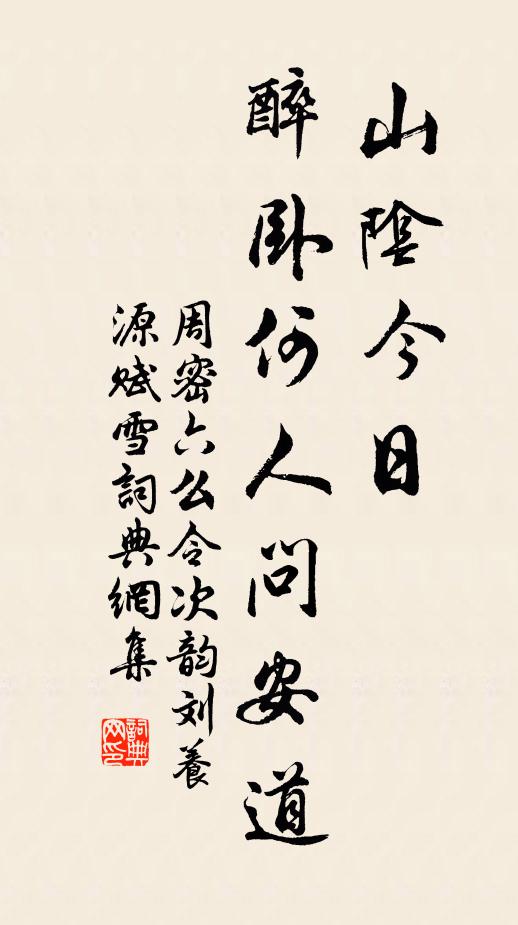 山陰今日
醉卧何人問安道
周密六么令次韵刘養
源赋雪詞典網集
詞典
网印